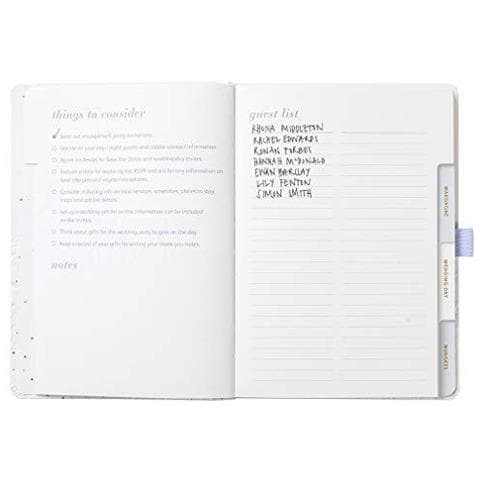 things to consider
Send out engagement party invitations.
Decide on your day / night guests and obtain contact information.
Agree on design for Save the Dates and wedding day invites.
Include a date for receiving the RSVP card and for any information on food allergies and vegetarian options.
Consider including information services, amenities, places to stay, maps and gift list details.
Set up a wedding gift list so the information can be included on the invites.
Think about gifts for the wedding party to give on the day.
Keep a record of your gifts for writing your thank you notes.
notes
guest list
RHONA MIDDLETON
RACHEL EDWARDS
RONAN FORBES
HANNAH McDONALD
EWAN BARCLAY
LILY FENTON
SIMON SMITH
WARDROBE
WEDDING DAY
BUDGETS